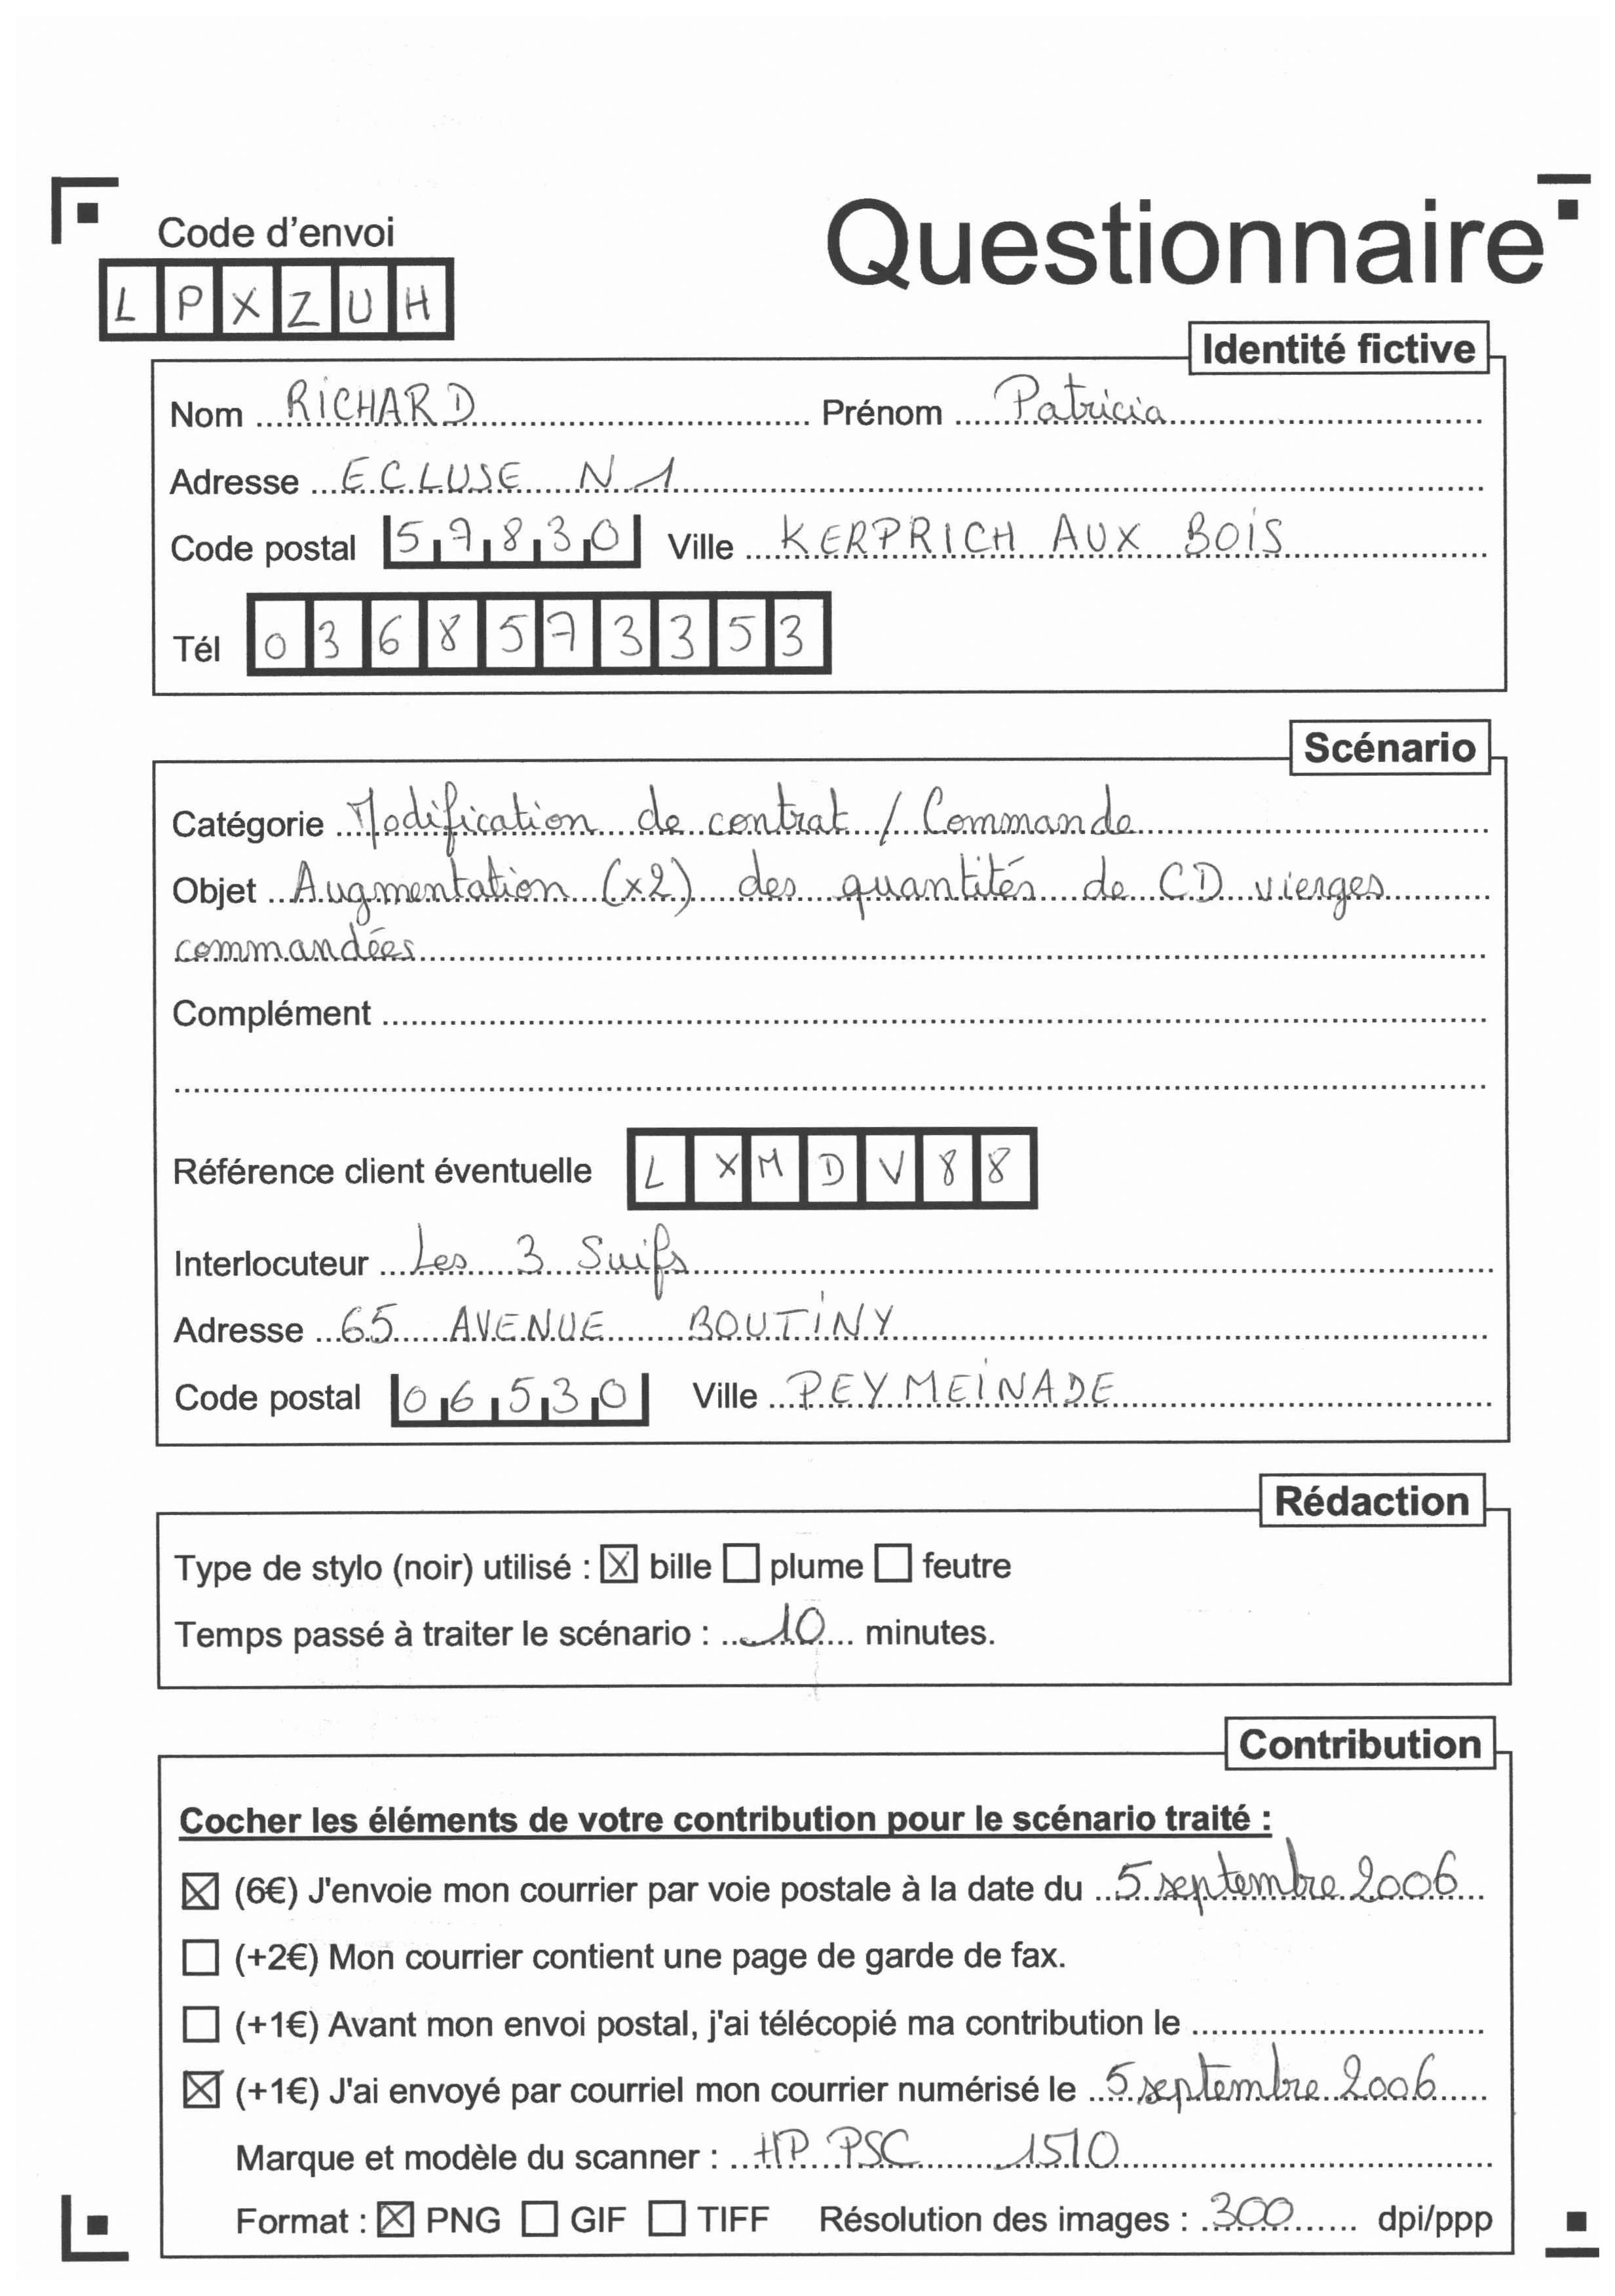 Code d'envoi
Questionnaire
L P X Z U H
Identité fictive
Nom RICHARD Prénom Patricia
Adresse ECLUSE N 1
Code postal 57830 Ville KERPRICH AUX BOIS
Tél 0368573353
Scénario
Catégorie Modification de contrat / Commande
Objet Augmentation (x2) des quantités de CD vierges
commandées
Complément
Référence client éventuelle L X M D V 8 8
Interlocuteur Les 3 Suifs
Adresse 65 AVENUE BOUTINY
Code postal 06530 Ville PEYMEINADE
Rédaction
Type de stylo (noir) utilisé : ☒ bille ☐ plume ☐ feutre
Temps passé à traiter le scénario : 10 minutes.
Contribution
Cocher les éléments de votre contribution pour le scénario traité :
☒ (6€) J'envoie mon courrier par voie postale à la date du 5 septembre 2006
☐ (+2€) Mon courrier contient une page de garde de fax.
☐ (+1€) Avant mon envoi postal, j'ai télécopié ma contribution le
☒ (+1€) J'ai envoyé par courriel mon courrier numérisé le 5 septembre 2006
Marque et modèle du scanner : HP PSC 1510
Format : ☒ PNG ☐ GIF ☐ TIFF Résolution des images : 300 dpi/ppp